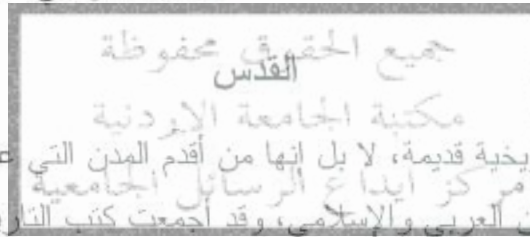 جميع الحقوق محفوظة
القدس
مكتبة الجامعة الاردنية
يخية قديمة، لا بل إنها من أقدم المدن التي
مركز ايداع الرسائل الجامعية
العربي والإسلامي، وقد أجمعت كتب التار